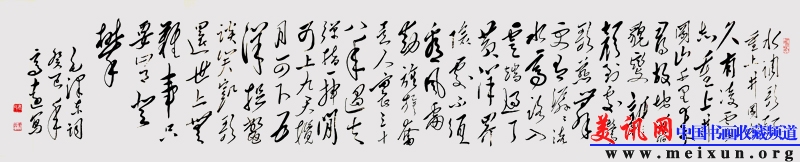 水调歌头
重上井冈山
久有凌云
志重上井
冈山千里来
寻故地旧
貌变新
颜到处莺
歌燕舞
更有潺潺流
水高路入
云端过了
黄洋界
险处不须
看风雷
动旌旗奋
是人寰三十
八年过去
弹指一挥间
可上九天揽
月可下五
洋捉鳖
谈笑凯歌
还世上无
难事只
要肯登
攀
毛泽东词
癸巳年
美讯网 中国书画收藏频道
www.meixun.org